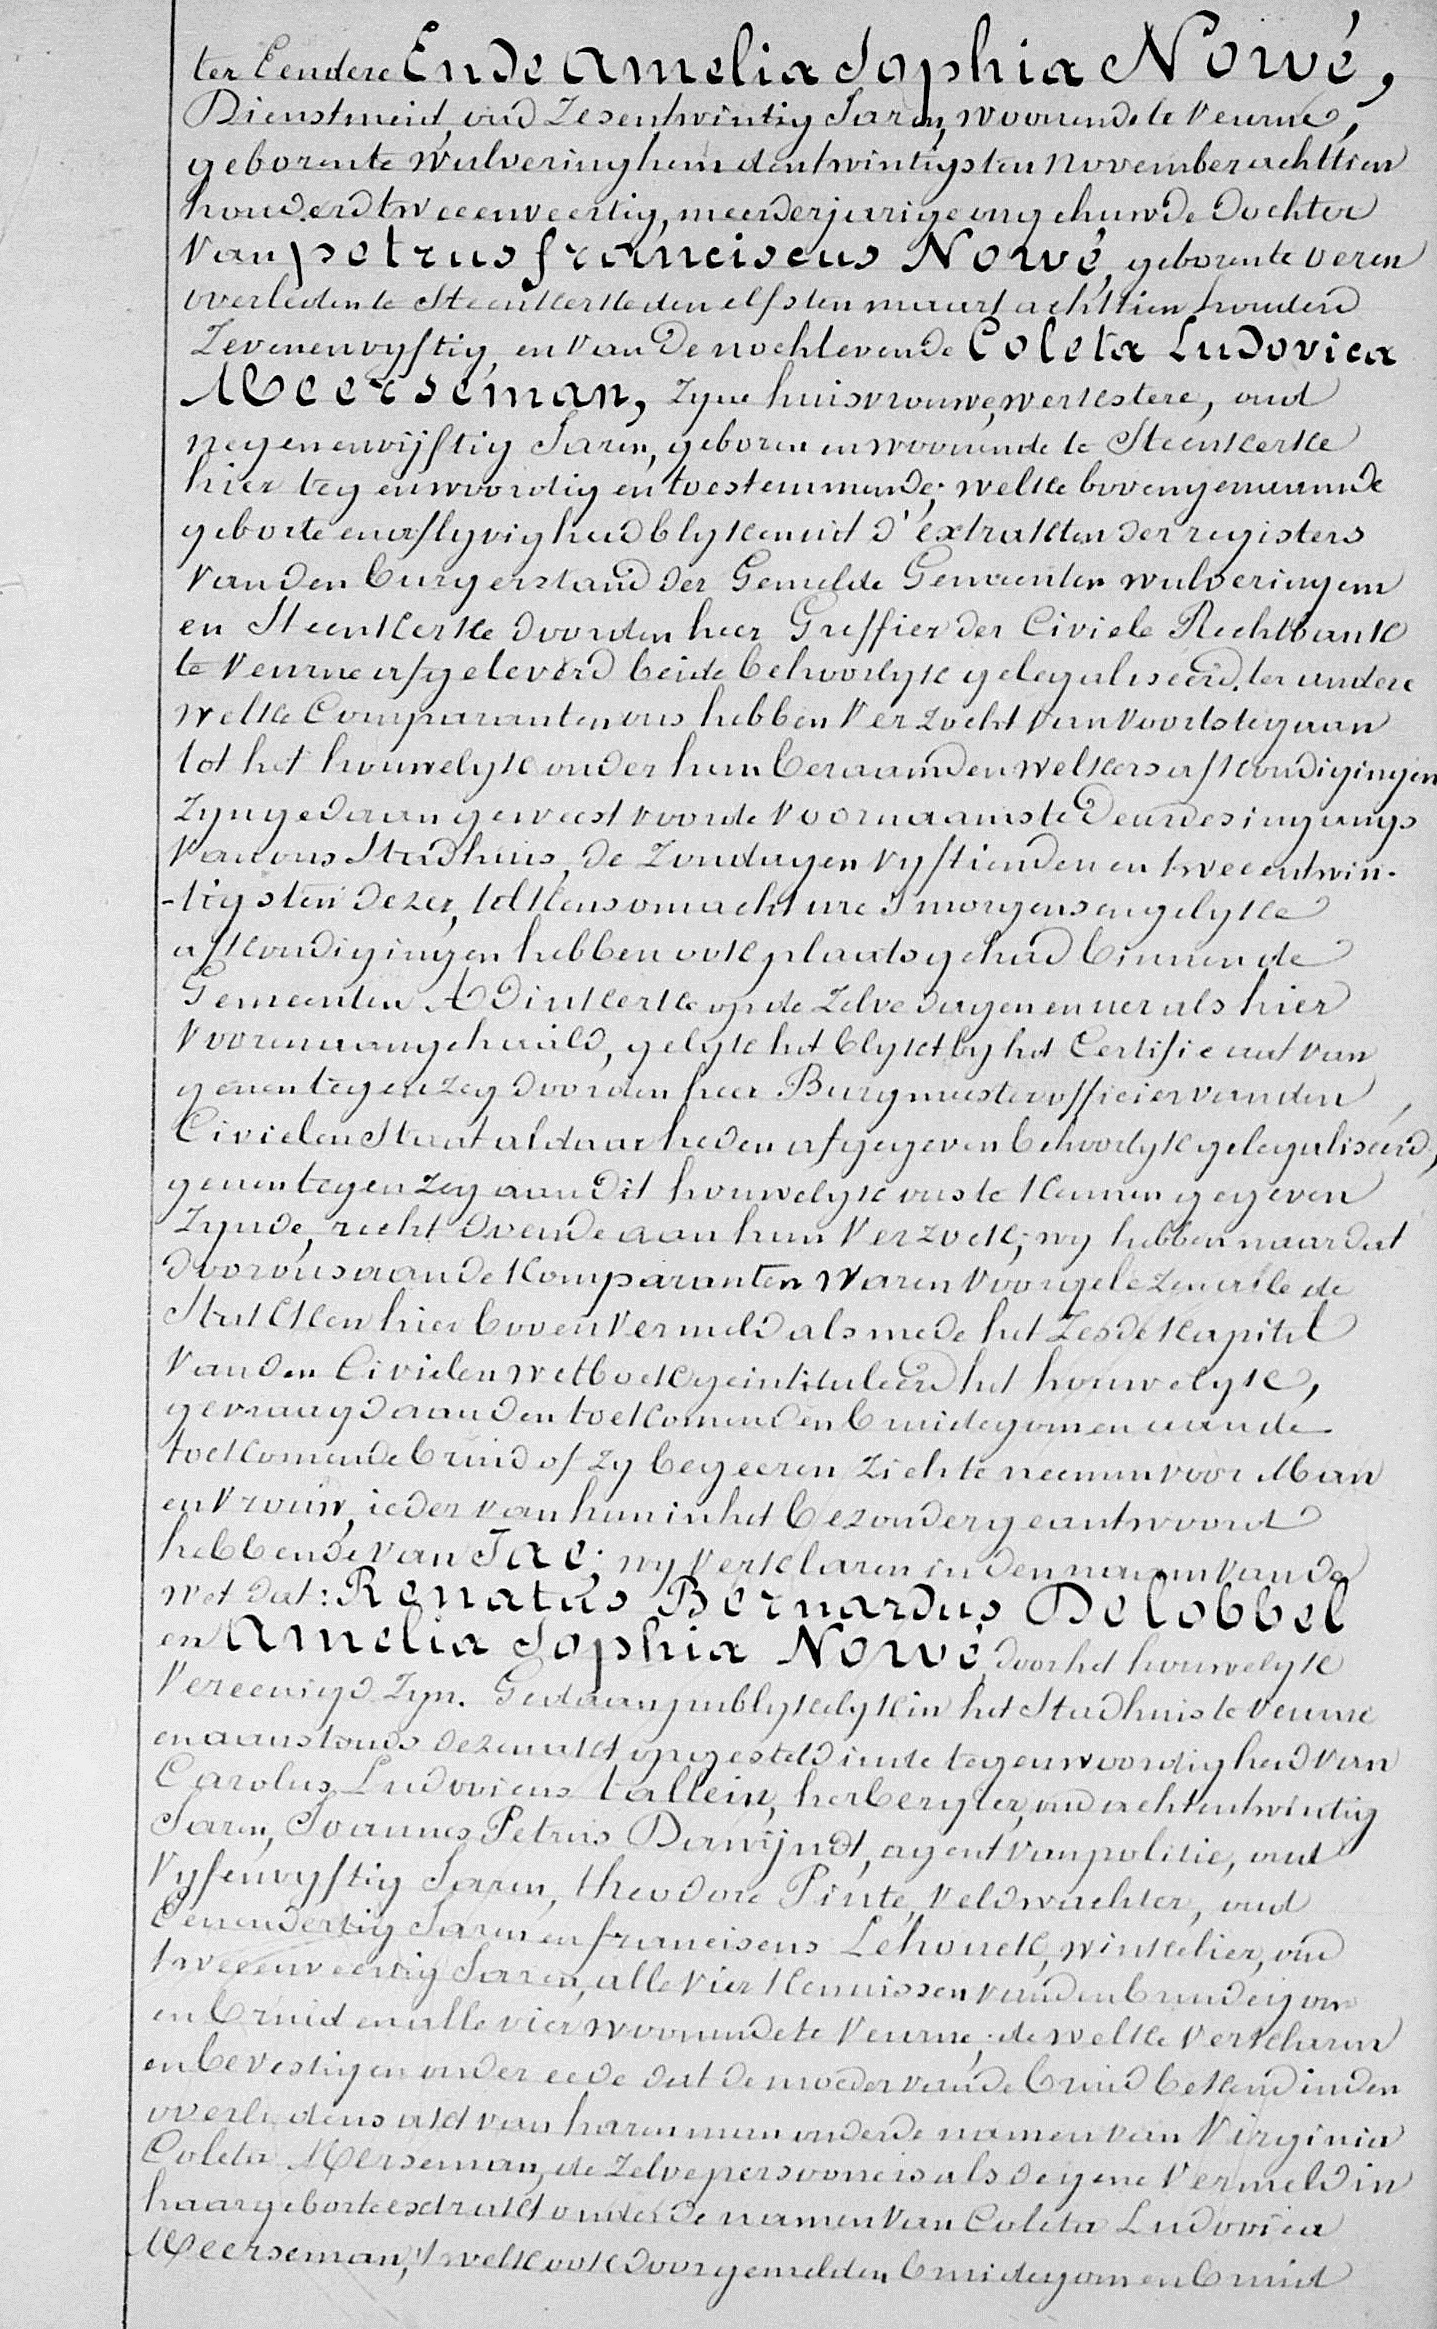 ter Eendere Ende Amelia Sophia Nowé,
Dienstmeid, oud Zesentwintig Jaren, woonende te Veurne,
geboren te Wulveringhem den twintigsten November achttien
honderd tweeenveertig, meerderjarige ongehuwde dochter
van petrus franciscus Nowé, geboren te veren
overleden te Steenkerke den elfsten maart achttien honderd
Zevenenvyftig, en van de noch levende Coleta Ludovica
Meerseman, zyne huisvrouwe, werkstere, oud
negenenvijftig Jaren, geboren en woonende te Steenkerke
hier tegenwoordig en toestemmende; welke bovengenaamde
geborte en aflyvigheid blyken uit d'extrakten der registers
van den burgerstand der Gemelde Gemeenten wulveringem
en Steenkerke door den heer Greffier der Civiele Rechtbank
te Veurne afgeleverd beide behoorlyk gelegaliseerd. ter andere
welke Comparanten ons hebben Verzocht van voorts te gaan
tot het houwelyk onder hun beraamd en welkers afkondigingen
Zyn gedaan geweest voor de voornaamste deur des ingangs
van ons Stadhuis, de Zondagen vyftienden en tweeentwin-
-tigsten dezer, telkens om acht ure s'morgens en gelyke
afkondigingen hebben ook plaats gehad binnen de
Gemeenten Adinkerke op de Zelve dagen en uer als hier
vooren aangehaald, gelyk het blykt by het Certificaat van
geenen tegenzeg door den heer Burgmeester officier van den
Civielen Staat aldaar heden afgegeven behoorlyk gelegaliseerd,
geenen tegenzeg aan dit houwelyk ons te kennen gegeven
Zynde, recht doende aan hun Verzoek; wy hebben naar dat
door ons aan de Komparanten waren voorgelezen alle de
Stukken hier boven Vermeld als mede het Zesde Kapitel
van den Civielen wetboek geintituleerd het houwelyk,
gevraagd aan den toekomenden bruidegom en aan de
toekomende bruid of zy begeeren zich te neemen voor Man
en Vrouw, ieder van hun in het bezonder geantwoord
hebbende van Jae; wy verklaren in den naam van de
wet dat: Renatus Bernardus Delobbel
en Amelia Sophia Nowé door het houwelyk
Vereenigd Zyn. Gedaan publykelyk in het Stadhuis te Veurne
en aanstonds deze akt opgesteld in de tegenwoordigheid van
Carolus Ludovicus tallein, herbergier, oud achtentwintig
Jaren, Joannes Petrus Dewijndt, agent van politie, oud
Vyfenvyftig Jaren, theodore Pinte, Veldwachter, oud
Eenendertig Jaren en franciscus Lehouck, winkelier, oud
tweeenveertig Jaren, alle vier Kennissen van den bruidegom
en bruid en alle vier woonende te Veurne; de welke verklaren
en bevestigen onder eede dat de moeder van de bruid bekend in den
overlydens akt van haren man onder de namen van Virginia
Coleta Merseman, de Zelve persoone is als degene Vermeld in
haar geborte extrakt onder de namen van Coleta Ludovica
Meerseman, 't welk ook door gemelden bruidegom en bruid